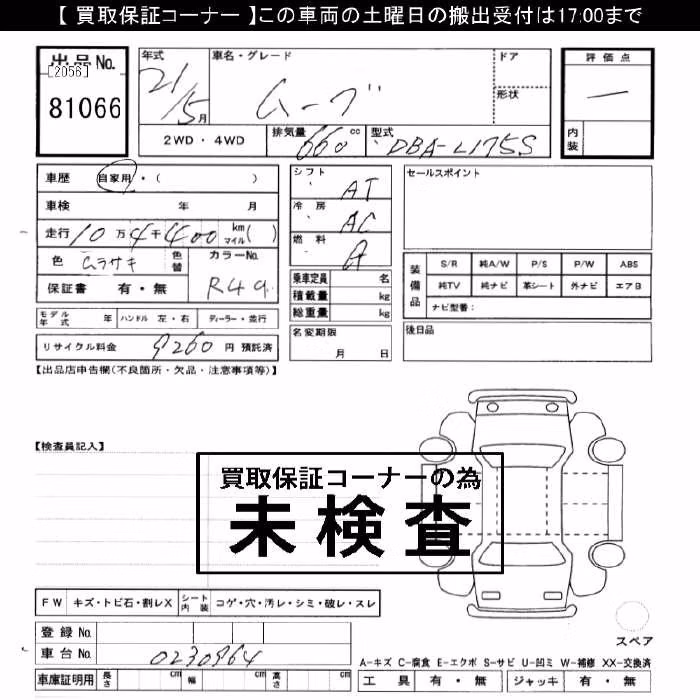 【 買取保証コーナー 】この車両の土曜日の搬出受付は17:00まで
出品No.
[2056]
81066
年式
21/5月
車名・グレード
ムーブ
ドア
形状
評価点
—
内装
2WD・4WD
排気量 660 cc
型式 DBA-L175S
車歴 自家用・( )
車検 年 月
走行 10万4千400 km マイル( )
色 ムラサキ 色替
カラーNo. R49
保証書 有・無
シフト AT
冷房 AC
燃料 A
乗車定員 名
積載量 kg
総重量 kg
セールスポイント
装備品
S/R 純A/W P/S P/W ABS
純TV 純ナビ 革シート 外ナビ エアB
ナビ型番：
モデル年式 年 ハンドル 左・右 ディーラー・並行
名変期限 月 日
後日品
リサイクル料金 9260 円 預託済
【出品店申告欄(不良箇所・欠品・注意事項等)】
【検査員記入】
買取保証コーナーの為
未検査
FW キズ・トビ石・割レX シート内装 コゲ・穴・汚レ・シミ・破レ・スレ
登録No.
車台No. 0230964
車庫証明用 長さ cm 幅 cm 高さ cm
スペア
A-キズ C-腐食 E-エクボ S-サビ U-凹ミ W-補修 XX-交換済
工具 有・無 ジャッキ 有・無